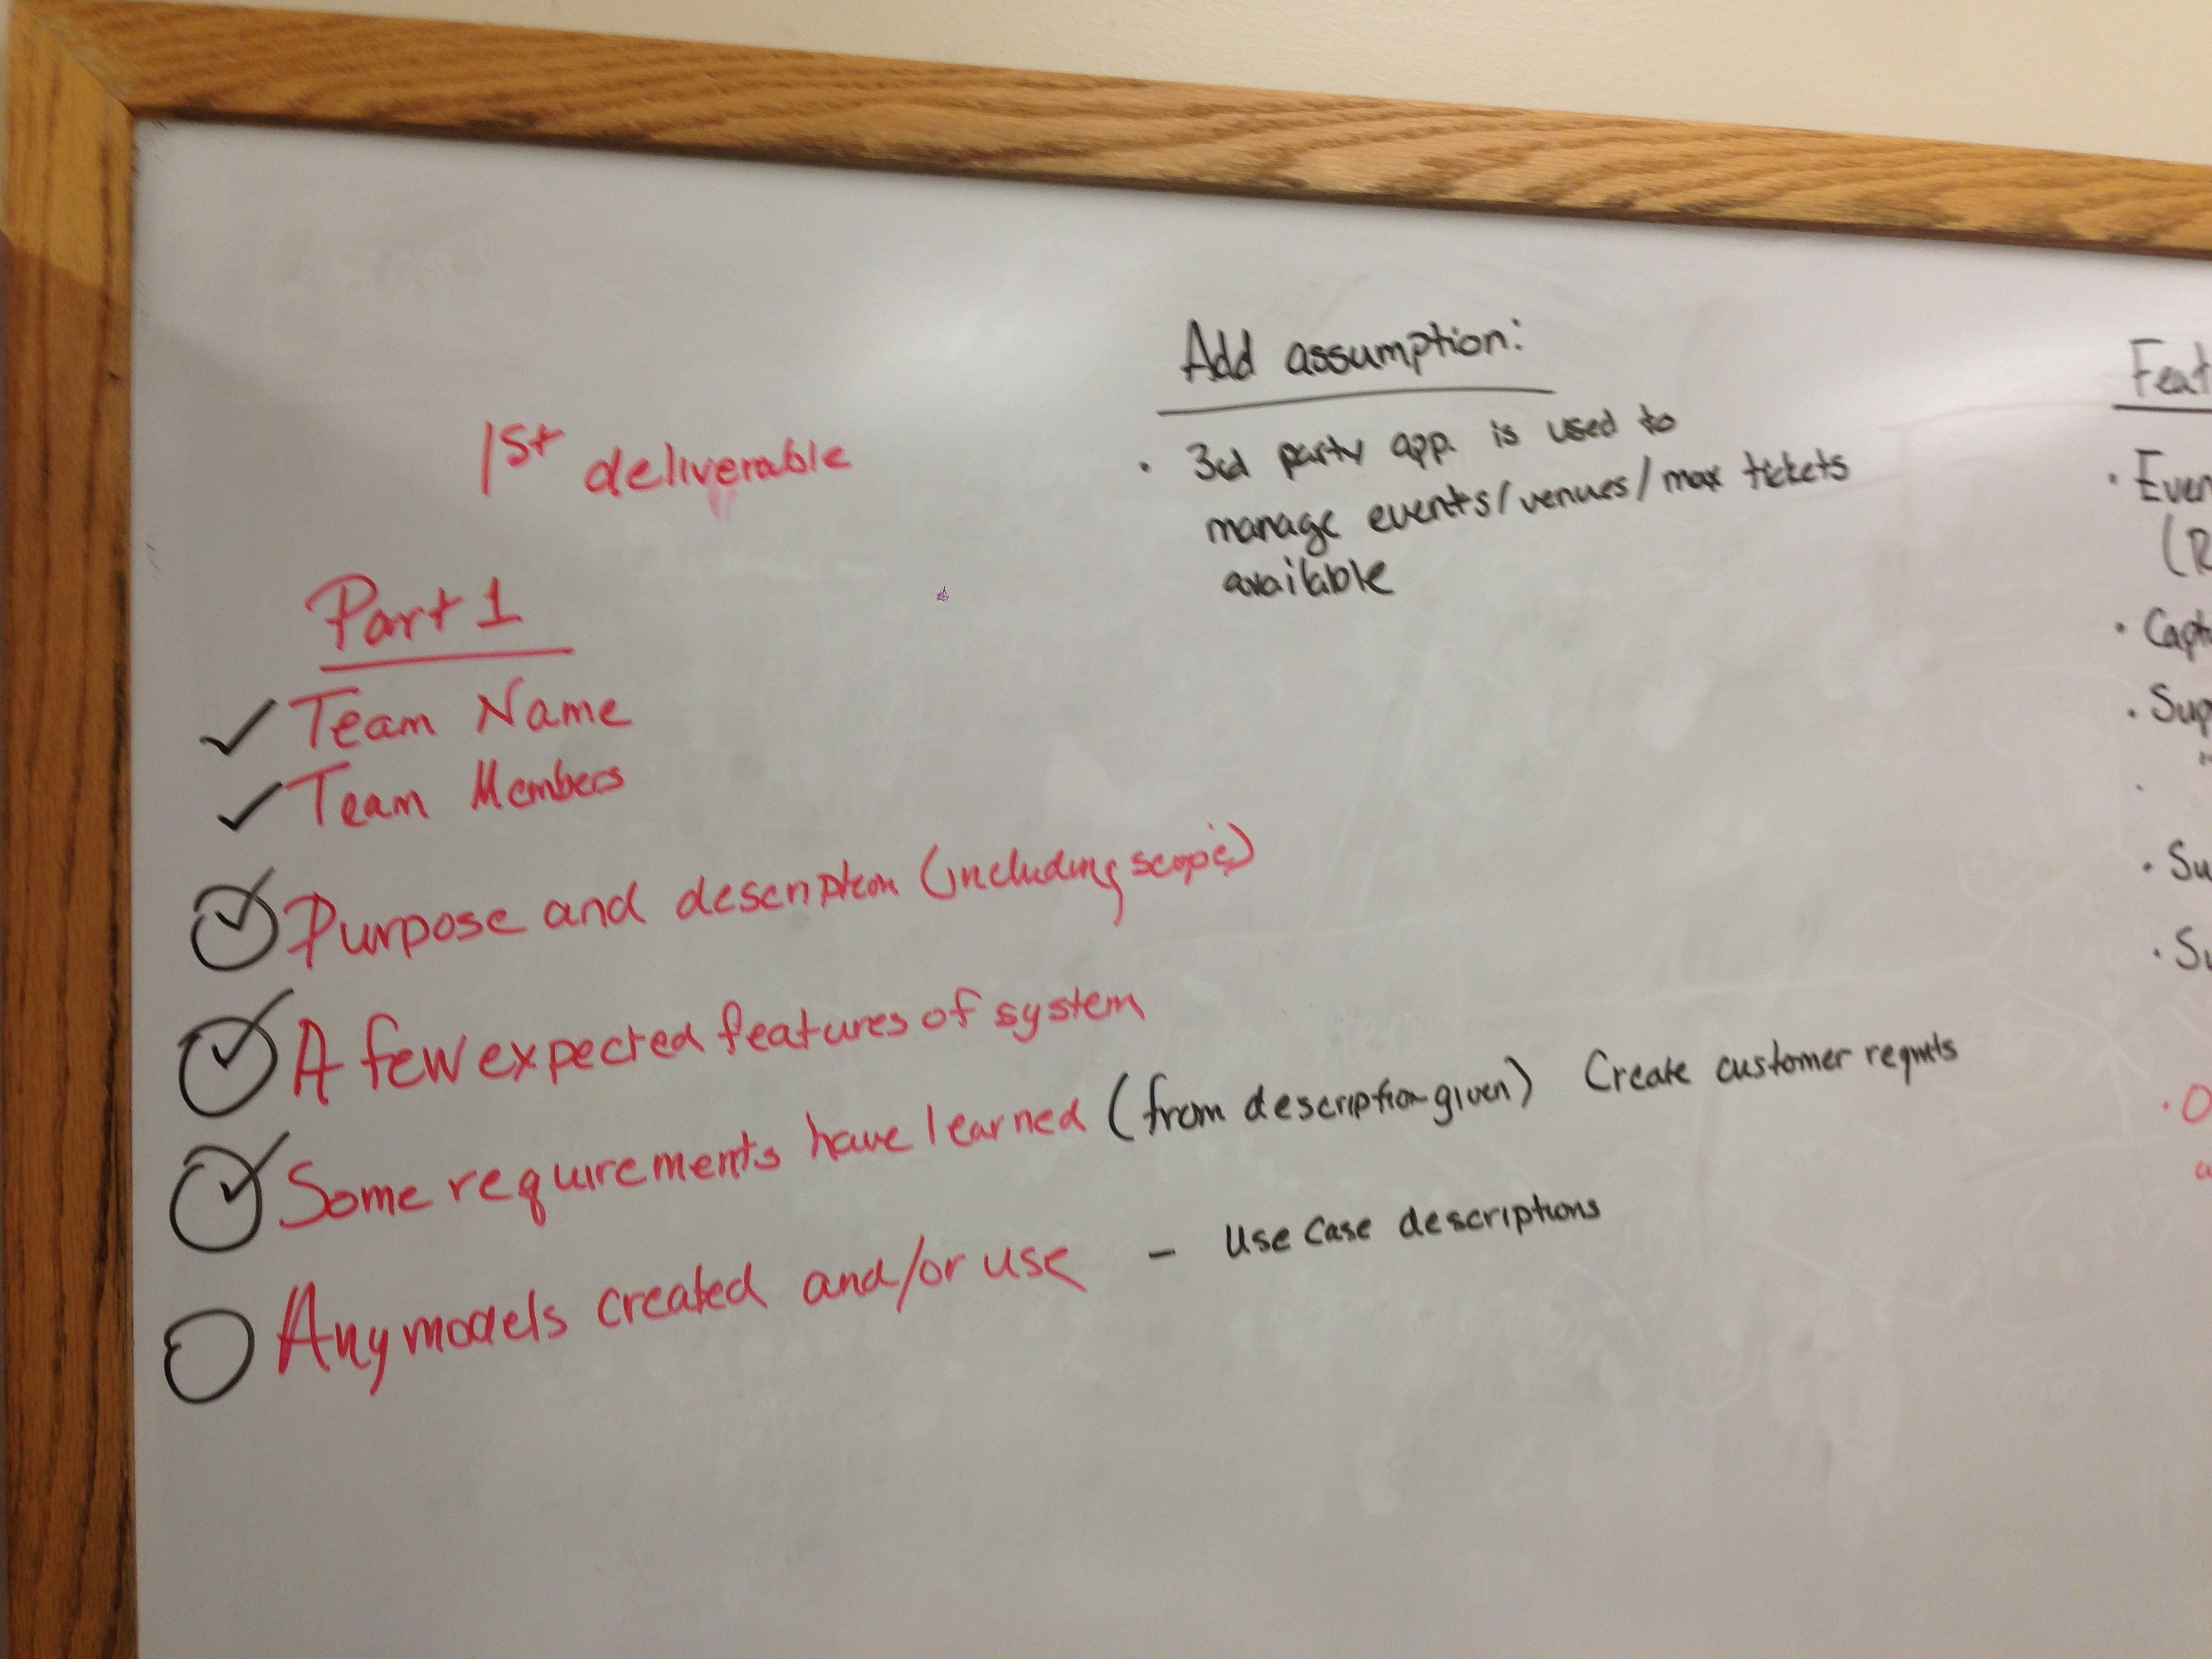 1st deliverable
Part 1
Team Name
Team Members
Purpose and description (including scope)
A few expected features of system
Some requirements have learned (from description given) Create customer reqmts
Any models created and/or use - Use Case descriptions
Add assumption:
· 3rd party app. is used to
manage events/venues/max tickets
available
Feat
· Even
(R
· Capt
· Sup
· Su
· Su
· O
a